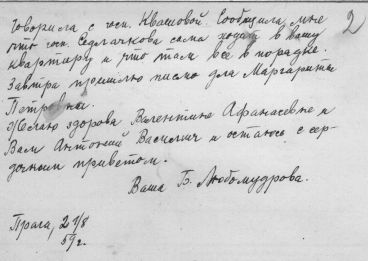 2
Говорила с госп. Квашовой. Сообщила мне
что госп. Седлачкова сама ходит в вашу
квартиру и что там все в порядке.
Завтра пришлю письмо для Маргариты
Петровны.
Желаю здоровья Валентине Афанасевне и
Вам Антоний Василич и остаюсь с сер-
дечным приветом.
Ваша Б. Любомудрова.
Прага, 21/8
59 г.